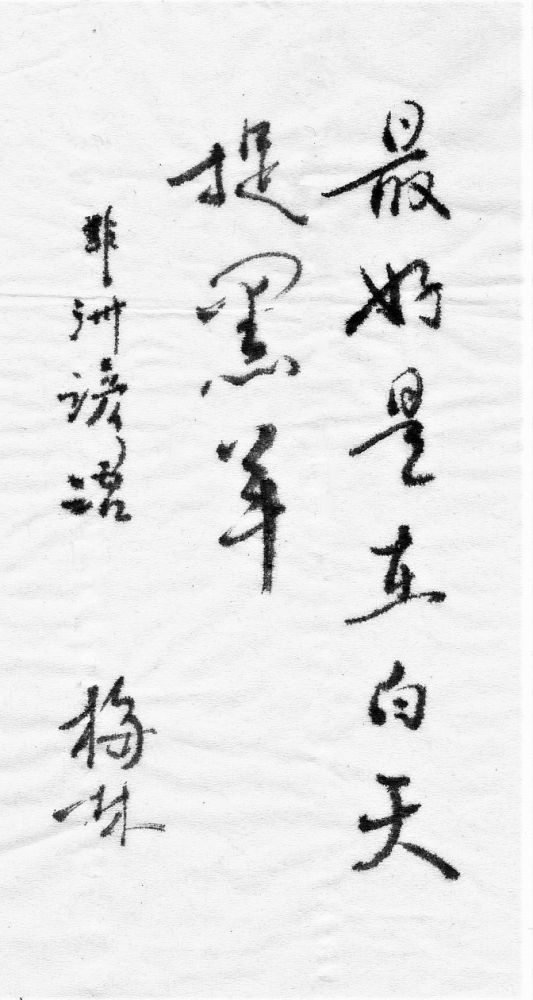 最好是在白天
捉黑羊
非洲谚语
梅林